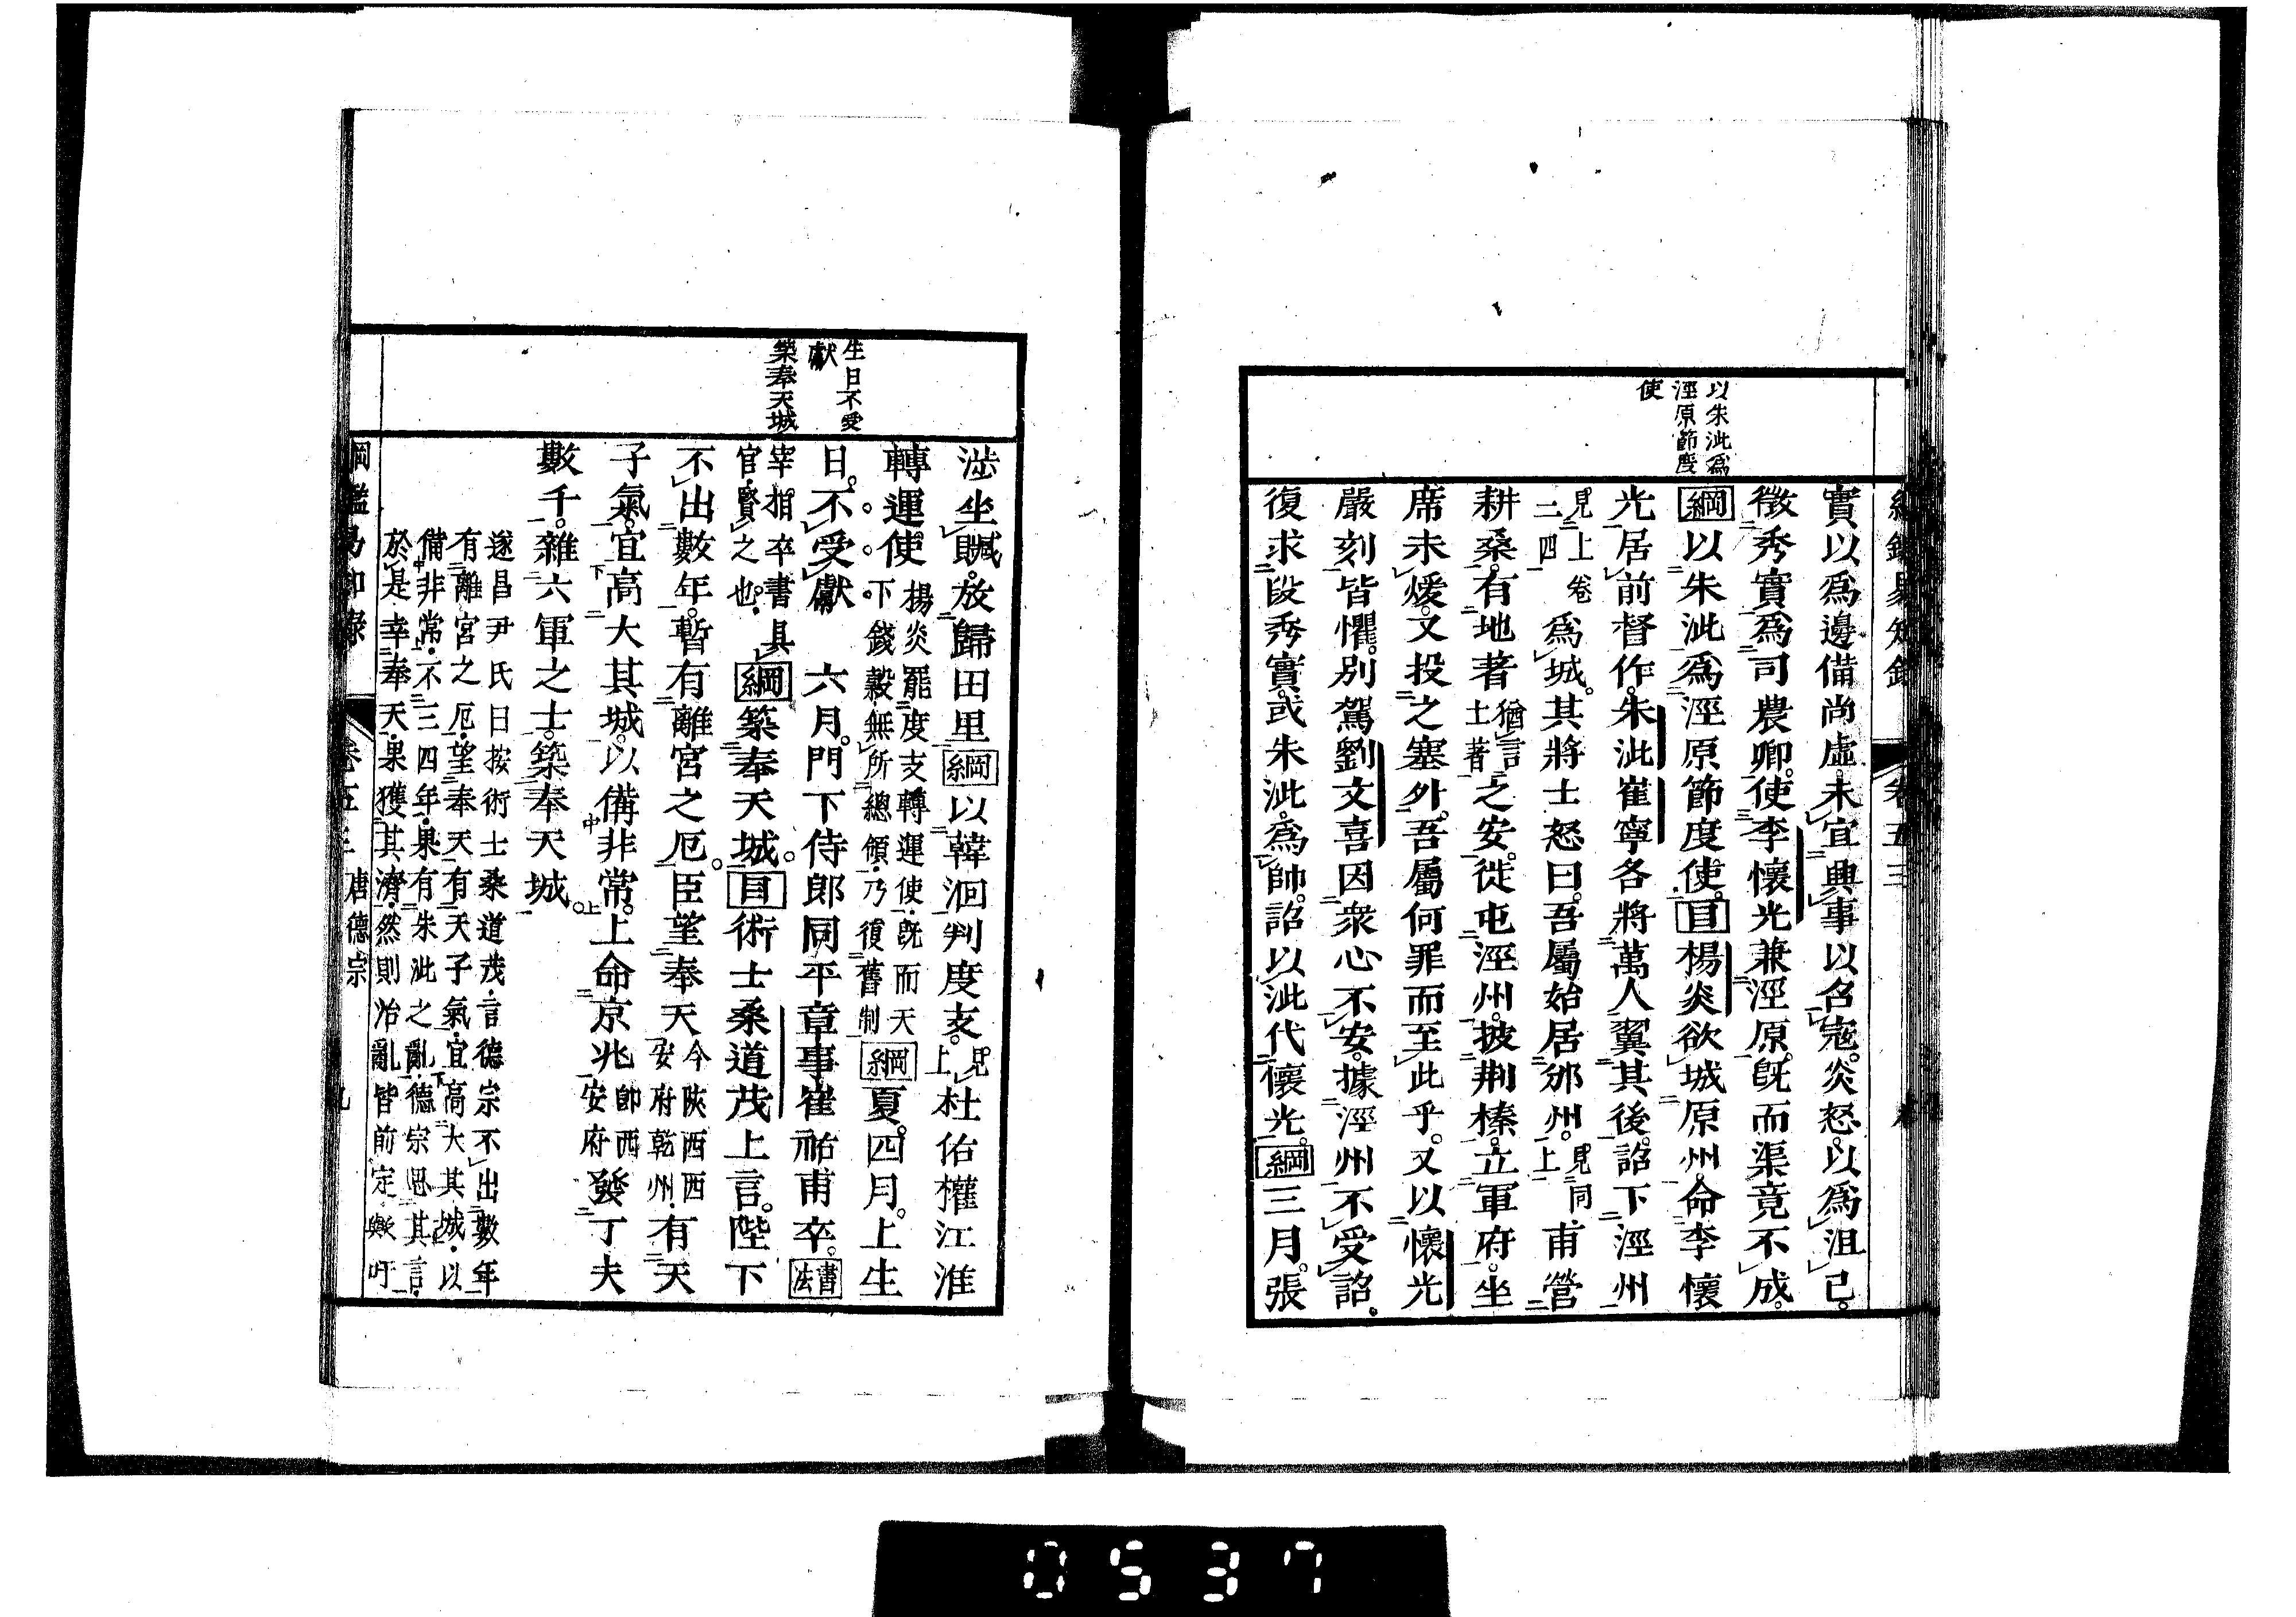 以朱泚爲
涇原節度
使
實以爲邊備尚虛未宜興事以名寇。炎怒。以爲沮已。
徵秀實爲司農卿。使李懷光兼涇原。旣而渠竟不成。
綱以朱泚爲涇原節度使。目楊炎欲城原州。命李懷
光居前督作。朱泚崔寧各將萬人翼其後。詔下涇州
見上卷
二四
爲城。其將士怒曰。吾屬始居邠州。見同上甫營
耕桑。有地著猶言土著之安。徙屯涇州。披荆榛。立軍府。坐
席未煖。又投之塞外。吾屬何罪而至此乎。又以懷光
嚴刻皆懼。別駕劉文喜因衆心不安。據涇州不受詔。
復求段秀實。或朱泚。爲帥。詔以泚代懷光。綱三月。張
卷五三
生日不受
獻
築奉天城
涉坐贓。放歸田里綱以韓洄判度支。見上杜佑權江淮
轉運使。楊炎罷度支轉運使。旣而天
下錢穀無所總領。乃復舊制
綱夏。四月。上生
日。不受獻六月。門下侍郎同平章事崔祐甫卒。書法
宰相卒書具
官。賢之也。
綱築奉天城。目術士桑道茂上言。陛下
不出數年。暫有離宮之厄。臣望奉天今陝西西
安府乾州。
有天
子氣。宜高大其城。以備非常。上命京兆卽西
安府
發丁夫
數千。雜六軍之士。築奉天城。
遂昌尹氏曰按術士桑道茂。言德宗不出數年
有離宮之厄。望奉天有天子氣。宜高大其城。以
備非常。不三四年。果有朱泚之亂。德宗思其言。
於是幸奉天。果獲其濟。然則治亂皆前定歟吁
綱鑑易知錄 卷五三 唐德宗 九
0537